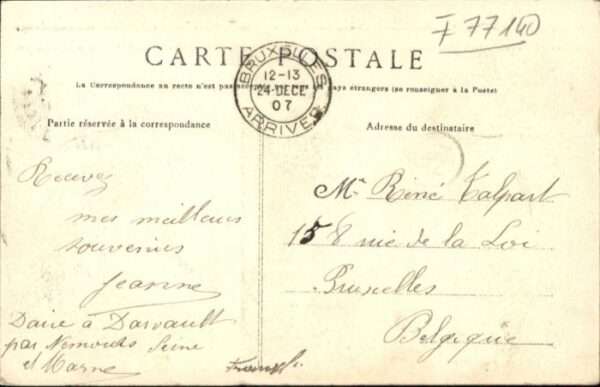 F 77140
CARTE POSTALE
BRUXELLES
12-13
24 DECE
07
ARRIVEE
La Correspondance au recto n'est pas acceptée pays étrangers (se renseigner à la Poste)
Partie réservée à la correspondance
Adresse du destinataire
Recevez
mes meilleurs
souvenirs
Jeanne
Daire à Darvault
par Nemours Seine
et Marne
Mr René Talpart
158 rue de la Loi
Bruxelles
Belgique